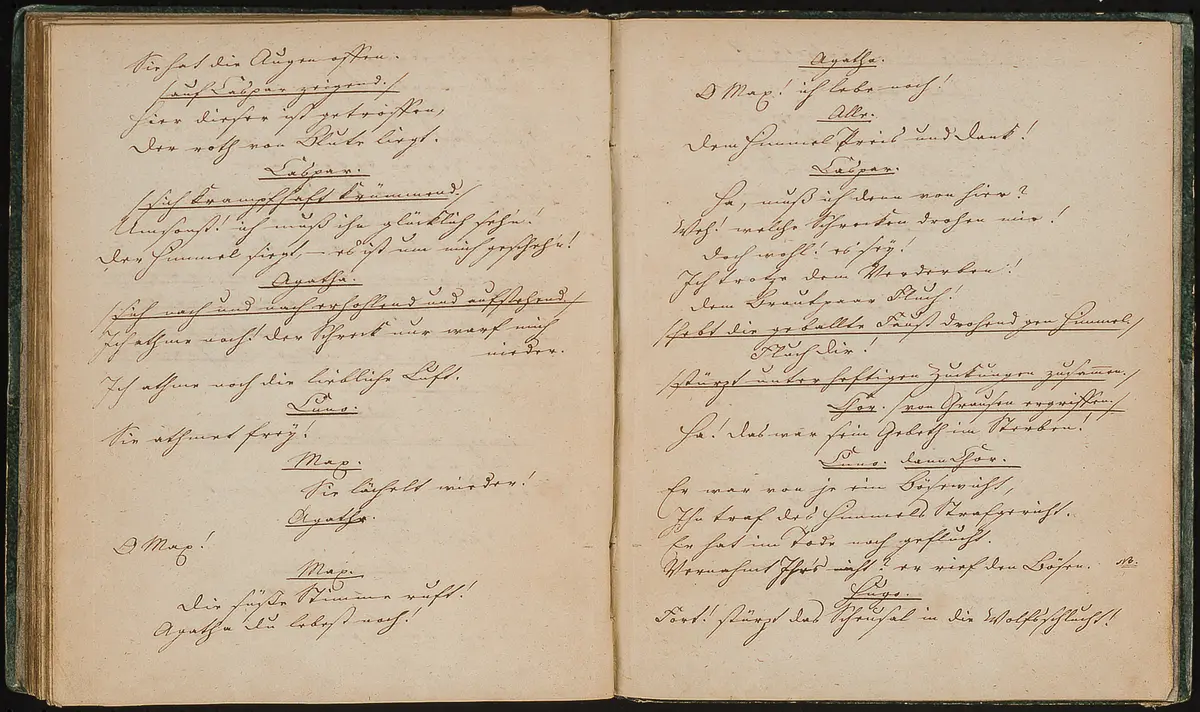 Sie hat die Augen offen.
/auf Caspar zeigend./
Hier dieser ist getroffen,
Der roth von Blute liegt.
Caspar.
/sich krampfhaft krümmend./
Umsonst! ich muß ihn glücklich sehn!
Der Himmel siegt, – es ist um mich geschehn!
Agatha.
/sich nach und nach erhohlend und aufstehend./
Ich athme noch! der Schreck nur warf mich
nieder.
Ich athme noch die liebliche Luft.
Cuno.
Sie athmet frey!
Max.
Sie lächelt wieder!
Agathe.
O Max!
Max.
Die süße Stimme ruft!
Agatha du lebest noch!
Agatha.
O Max! ich lebe noch!
Alle.
Dem Himmel Preis und Dank!
Caspar.
Ha, muß ich denn von hier?
Weh! welche Schrecken drohen mir!
Doch wohl! es sey!
Ich trotze dem Verderben!
dem Brautpaar Fluch!
/hebt die geballte Faust drohend gen Himmel./
Fluch dir!
/stürzt unter heftigen Zuckungen zusammen./
Chor. /von Grausen ergriffen./
Ha! das war sein Gebeth im Sterben!
Cuno. dann Chor.
Er war von je ein Bösewicht,
Ihn traf des Himmels Strafgericht.
Er hat im Tode noch geflucht.
Vernahmt Ihrs nicht? er rief den Bösen. NB.
Hugo.
Fort! stürzt das Scheusal in die Wolfsschlucht!